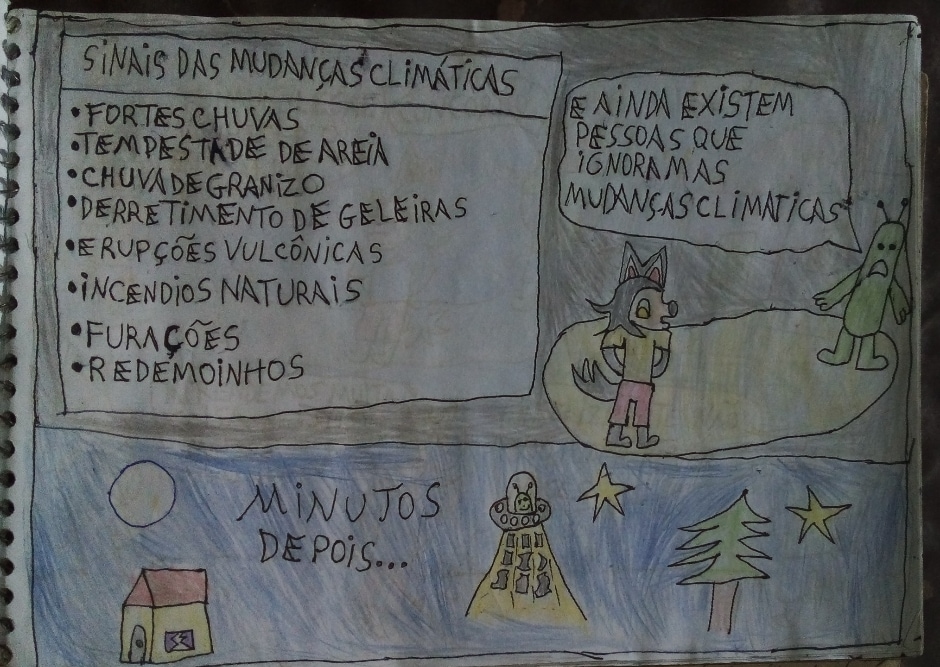 SINAIS DAS MUDANÇAS CLIMÁTICAS
•FORTES CHUVAS
•TEMPESTADE DE AREIA
•CHUVA DE GRANIZO
•DERRETIMENTO DE GELEIRAS
•ERUPÇÕES VULCÔNICAS
•INCENDIOS NATURAIS
•FURAÇÕES
•REDEMOINHOS
E AINDA EXISTEM
PESSOAS QUE
IGNORAM AS
MUDANÇAS CLIMATICAS
MINUTOS
DEPOIS...